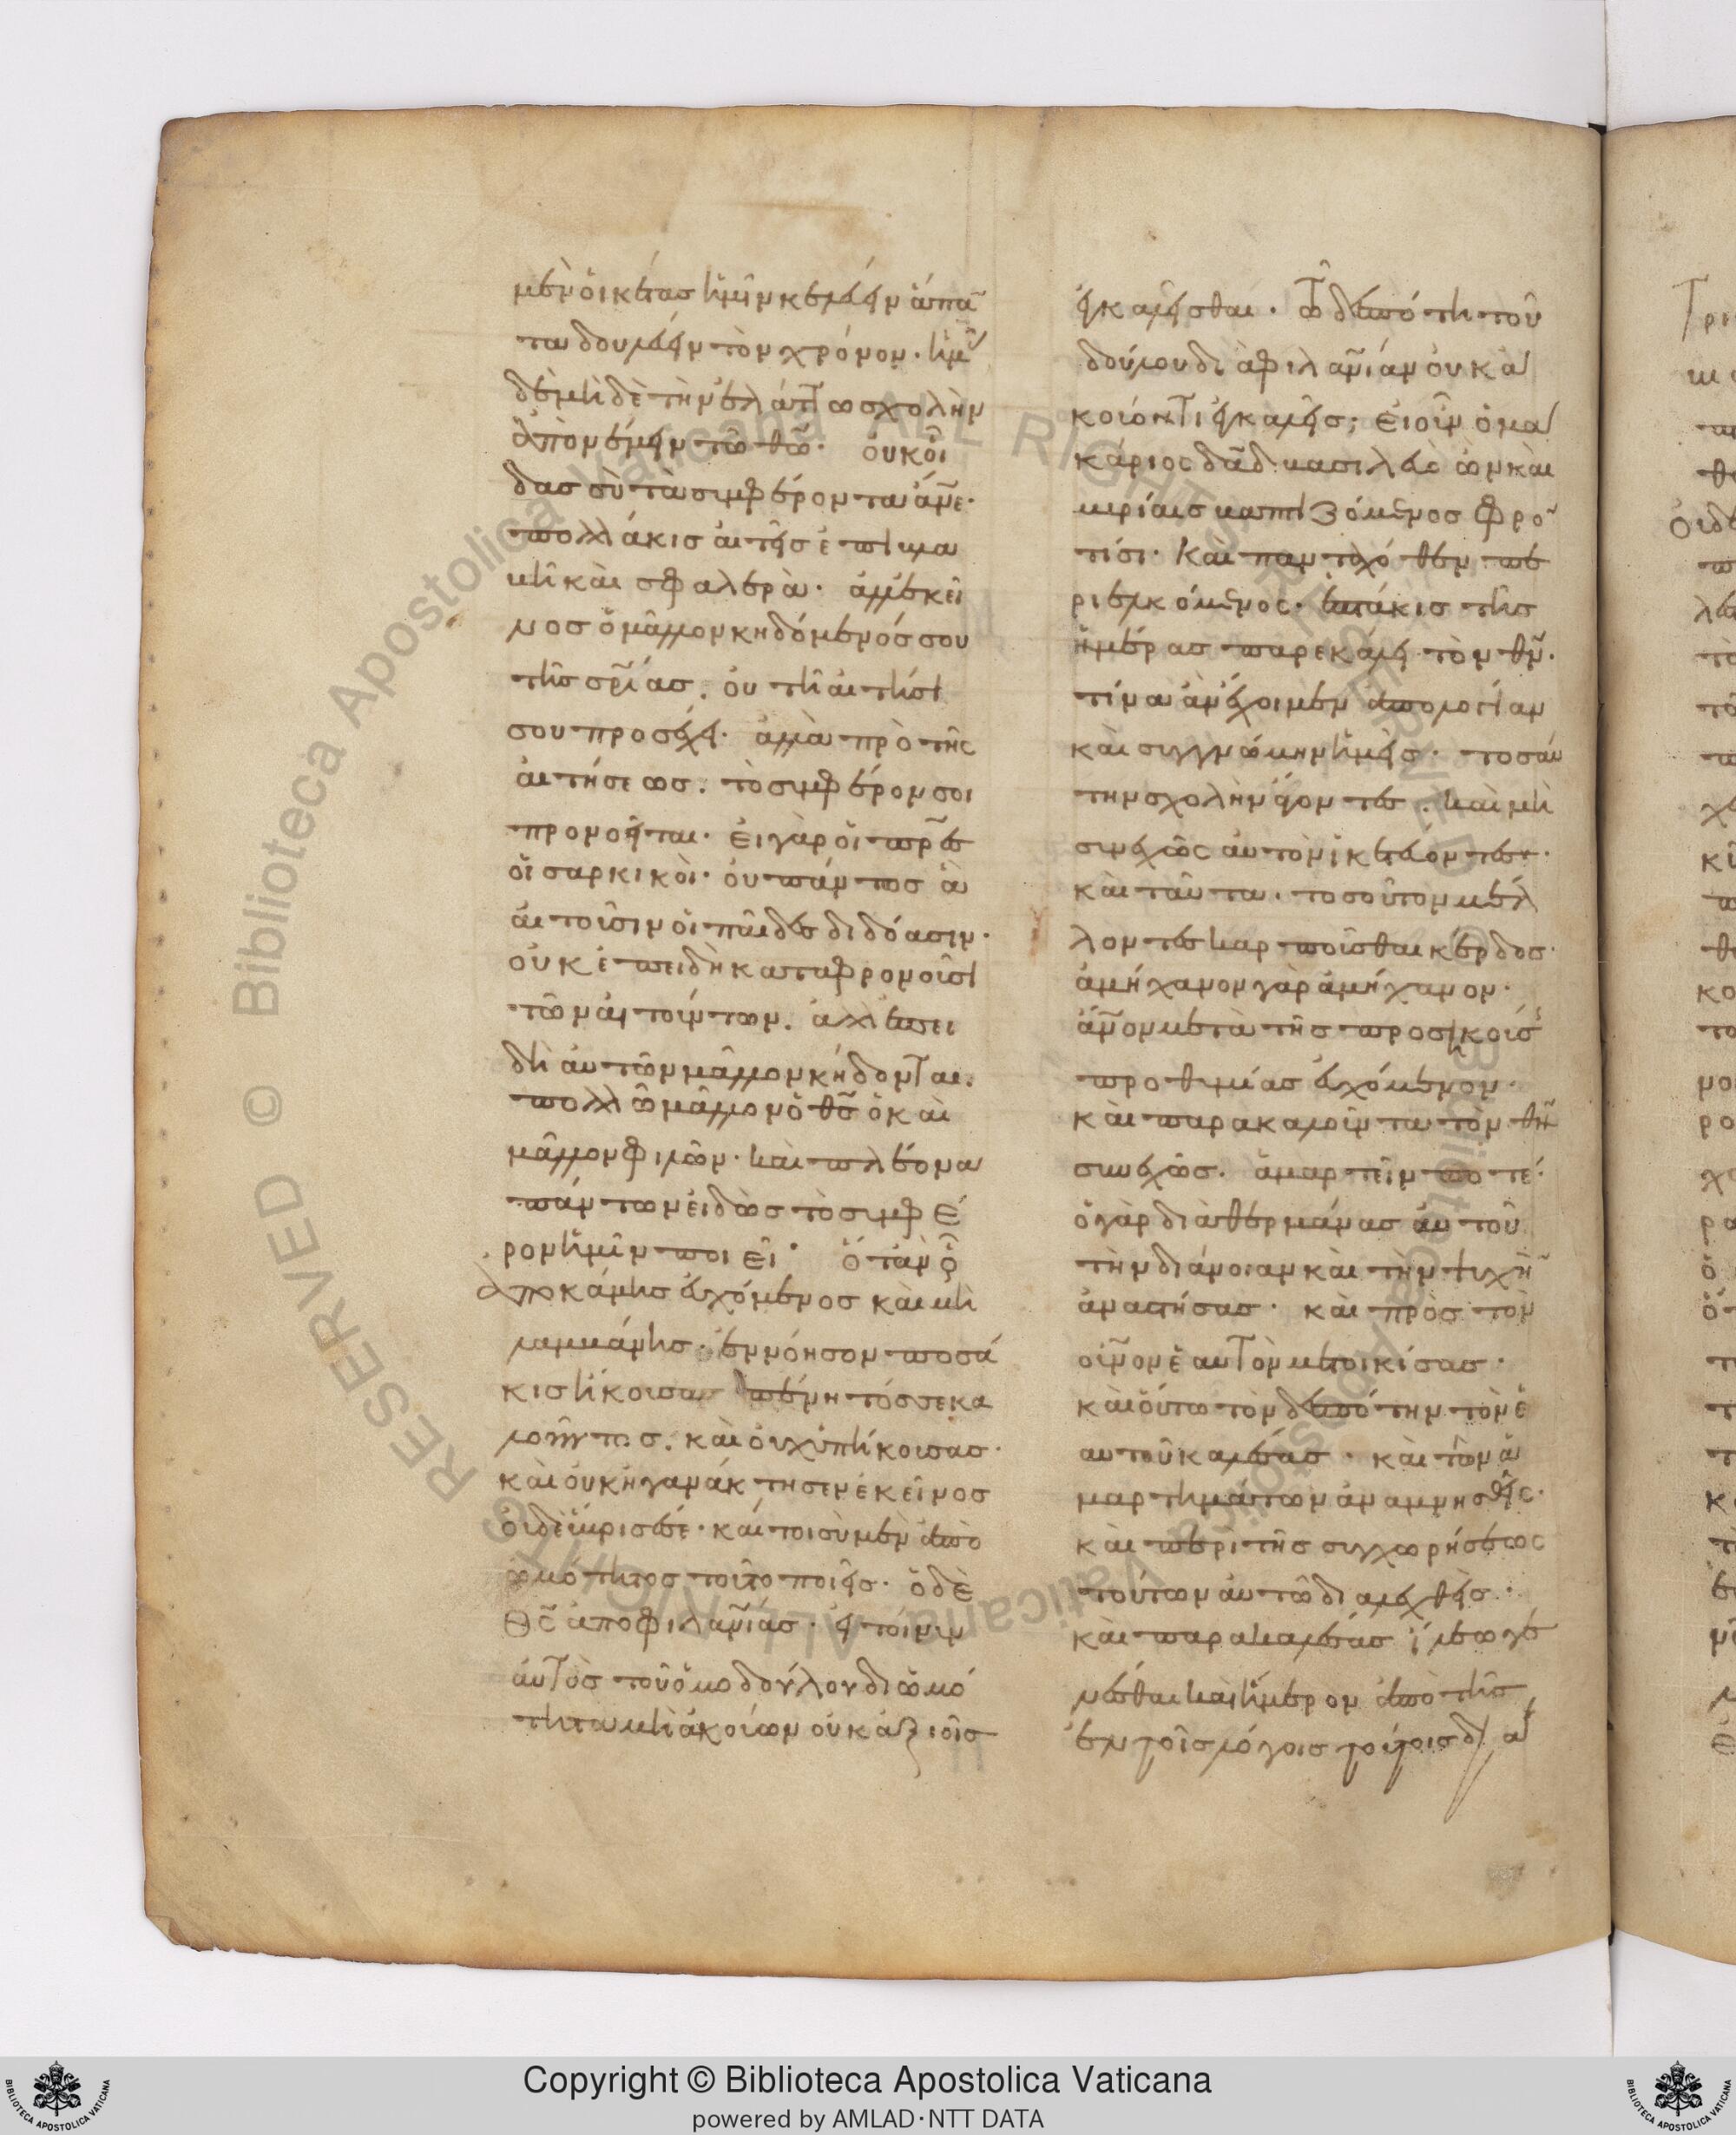 μὲν οἰκέτας ἡμῖν κελεύειν ἅπαν
τα δουλεύειν τὸν χρόνον· ἡμᾶς
δὲ μηδὲ τὴν ἐλάττω σχολὴν
ἀπονέμειν τῶ θῶ· οὐκ οἶ
δας σὺ τὰ συμφέροντα ἄνε·
πολλάκις αἰτεῖς ἐπιβλα
βῆ καὶ σφαλερὰ· ἀλλ' ἐκεῖ
νος ὁ μᾶλλον κηδόμενός σου
τῆς σρίας. οὐ τῆ αἰτήσει
σου προσέχει· ἀλλὰ πρὸ τῆς
αἰτήσεως. τὸ συμφέρον σοι
προνοεῖται· εἰ γὰρ οἱ πρες
οἱ σαρκικοὶ· οὐ πάντως ἃ
αἰτοῦσιν οἱ παῖδες διδόασιν·
οὐκ ἐπειδὴ καταφρονοῦσι
τῶν αἰτούντων. ἀλλ' ἐπει
δὴ αὐτῶν μᾶλλον κήδονται.
πολλῶ μᾶλλον ὁ θς ὁ καὶ
μᾶλλον φιλῶν· καὶ πλέον ἁ
πάντων εἰδὼς τὸ συμφέ
ρον ἡμῖν ποιεῖ· ὅταν οὖν
ἀποκάμης εὐχόμενος καὶ μὴ
λαμβάνης· ἐννόησον ποσά
κις ἤκουσας πένητός σε κα
λοῦντος. καὶ οὐχ ὑπήκουσας·
καὶ οὐκ ἠγανάκτησεν ἐκεῖνος
οὐδὲ ὕβρισέ σε· καίτοι σὺ μὲν ἀπὸ
ὠμότητος τοῦτο ποιεῖς· ὁ δὲ
θς ἀπο φιλανίας· εἰ τοίνυν
αὐτὸς τοῦ ὁμοδούλου δι' ὠμό
τητα μὴ ἀκούων οὐκ ἀξιοῖς
ἐγκαλεῖσθαι· τῶ δεσπότη τοῦ
δούλου διὰ φιλανίαν οὐκ ἀ
κούοντι ἐγκαλεῖς; εἰ οὖν ὁ μα
κάριος δαδ βασιλεὺς ὢν καὶ
μυρίαις βαπτιζόμενος φρον
τίσι· καὶ πανταχόθεν πε
ριελκόμενος· ἑπτάκις τῆς
ἡμέρας παρεκάλει τὸν θν·
τίνα ἂν ἔχοιμεν ἀπολογίαν
καὶ συγγνώμην ἡμεῖς· τοσαύ
την σχολὴν ἄγοντες. καὶ μὴ
συνεχῶς αὐτὸν ἱκετεύοντες·
καὶ ταῦτα. τοσοῦτον μέλ
λοντες καρποῦσθαι κέρδος·
ἀμήχανον γὰρ ἀμήχανον·
ἄνον μετὰ τῆς προσηκούσης
προθυμίας εὐχόμενον·
καὶ παρακαλοῦντα τὸν θν
συνεχῶς. ἁμαρτεῖν ποτέ·
ὁ γὰρ διαθερμάνας αὐτοῦ
τὴν διάνοιαν καὶ τὴν ψυχὴν
ἀναστήσας· καὶ πρὸς τὸν
οὐνον ἑαυτὸν μετοικίσας·
καὶ οὕτω τὸν δεσπότην τὸν ἑ
αυτοῦ καλέσας· καὶ τῶν ἁ
μαρτημάτων ἀναμνησθεὶς·
καὶ περὶ τῆς συγχωρήσεως
τούτων αὐτῶ διαλεχθεὶς·
καὶ παρακαλέσας ἵλεω γε
νέσθαι καὶ ἥμερον ἀπὸ τῆς
ἐν τοῖς λόγοις τούτοις δια
Copyright © Biblioteca Apostolica Vaticana
powered by AMLAD·NTT DATA